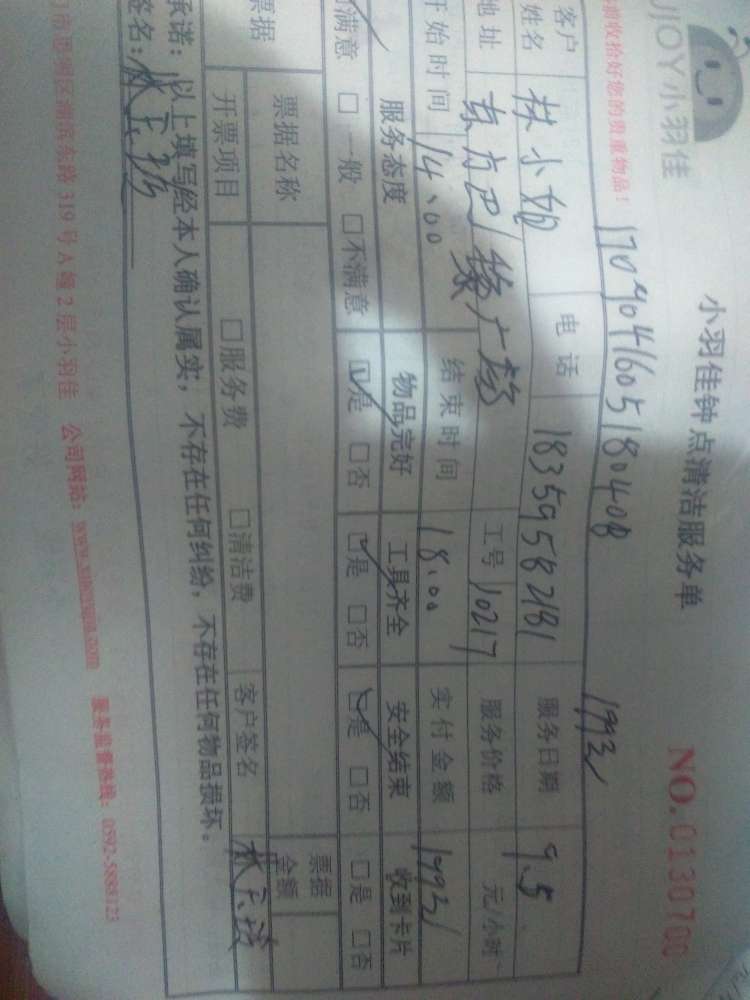 UJOY小羽佳
小羽佳钟点清洁服务单
NO.0130700
请收拾好您的贵重物品!
170904160518040B
客户姓名 林小姐 电话 18359582181 服务日期 9.5
地址 东方巴黎广场 工号 10217 服务价格 元/小时
开始时间 14:00 结束时间 18:00 实付金额
服务态度 物品完好 工具齐全 安全结束 收到卡片
满意 □一般 □不满意 ☑是 □否 ☑是 □否 ☑是 □否 □是 □否
票据 票据名称 票据金额
开票项目 □服务费 □清洁费 客户签名
承诺:以上填写经本人确认属实,不存在任何纠纷,不存在任何物品损坏。
签名:
思明区湖滨东路319号A幢2层小羽佳 公司网站: 服务监督热线:0592-5888123